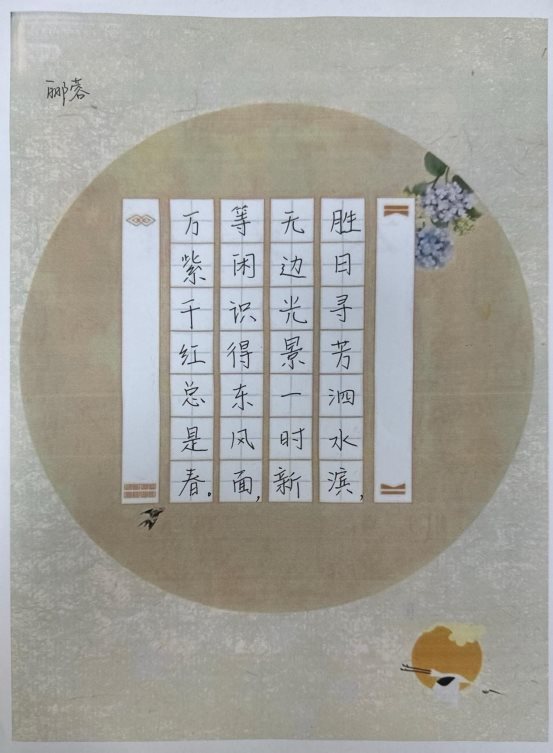 郦蓉
胜日寻芳泗水滨，
无边光景一时新
等闲识得东风面，
万紫千红总是春。